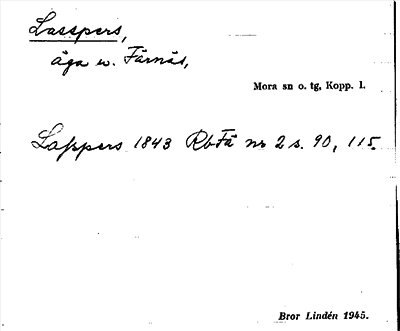 Lasspers,
äga w. Färnäs,
Mora sn o. tg, Kopp. l.
Lafspers 1843 RbFä nr 2 s. 90, 115.
Bror Lindén 1945.